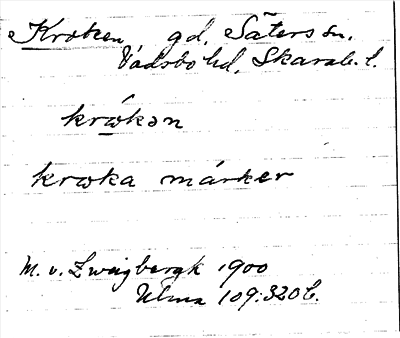 Kroken gd, Säters sn,
Vadsbo hd, Skarab. l.
krωkən
krωka márker
M. v. Zweigbergk 1900
Ulma 109:320 C.